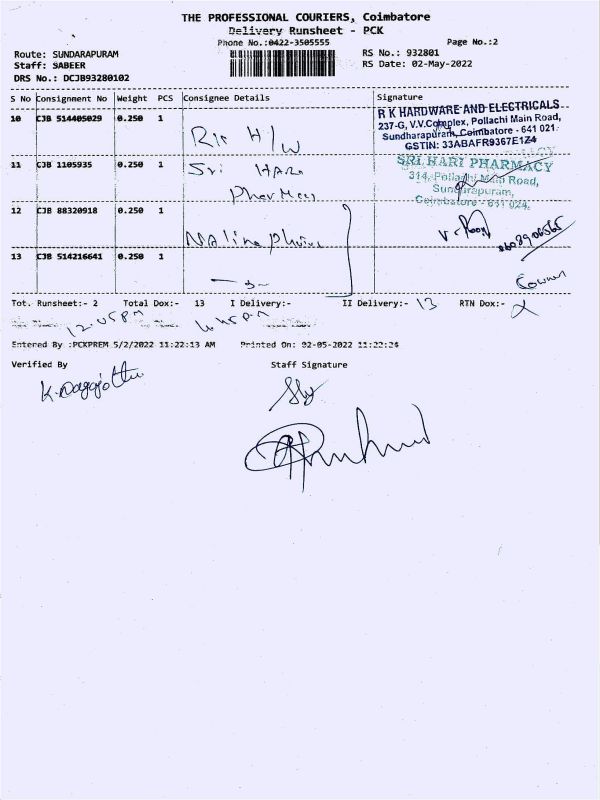 THE PROFESSIONAL COURIERS, Coimbatore
Delivery Runsheet - PCK
Phone No.:0422-3505555 Page No.:2
Route: SUNDARAPURAM RS No.: 932801
Staff: SABEER RS Date: 02-May-2022
DRS No.: DCJB93280102
S No Consignment No Weight PCS Consignee Details Signature
10 CJB 514405029 0.250 1 H/W
R K HARDWARE AND ELECTRICALS
237-G, V.V.Complex, Pollachi Main Road,
Sundharapuram, Coimbatore - 641 021.
GSTIN: 33ABAFR9367E1Z4
11 CJB 1105935 0.250 1 Sri Hari
SRI HARI PHARMACY
314, Pollachi Main Road,
Sundarapuram,
Coimbatore - 641 024.
12 CJB 88320918 0.250 1
13 CJB 514216641 0.250 1
Tot. Runsheet:- 2 Total Dox:- 13 I Delivery:- II Delivery:- 13 RTN Dox:-
Entered By :PCKPREM 5/2/2022 11:22:13 AM Printed On: 02-05-2022 11:22:24
Verified By Staff Signature